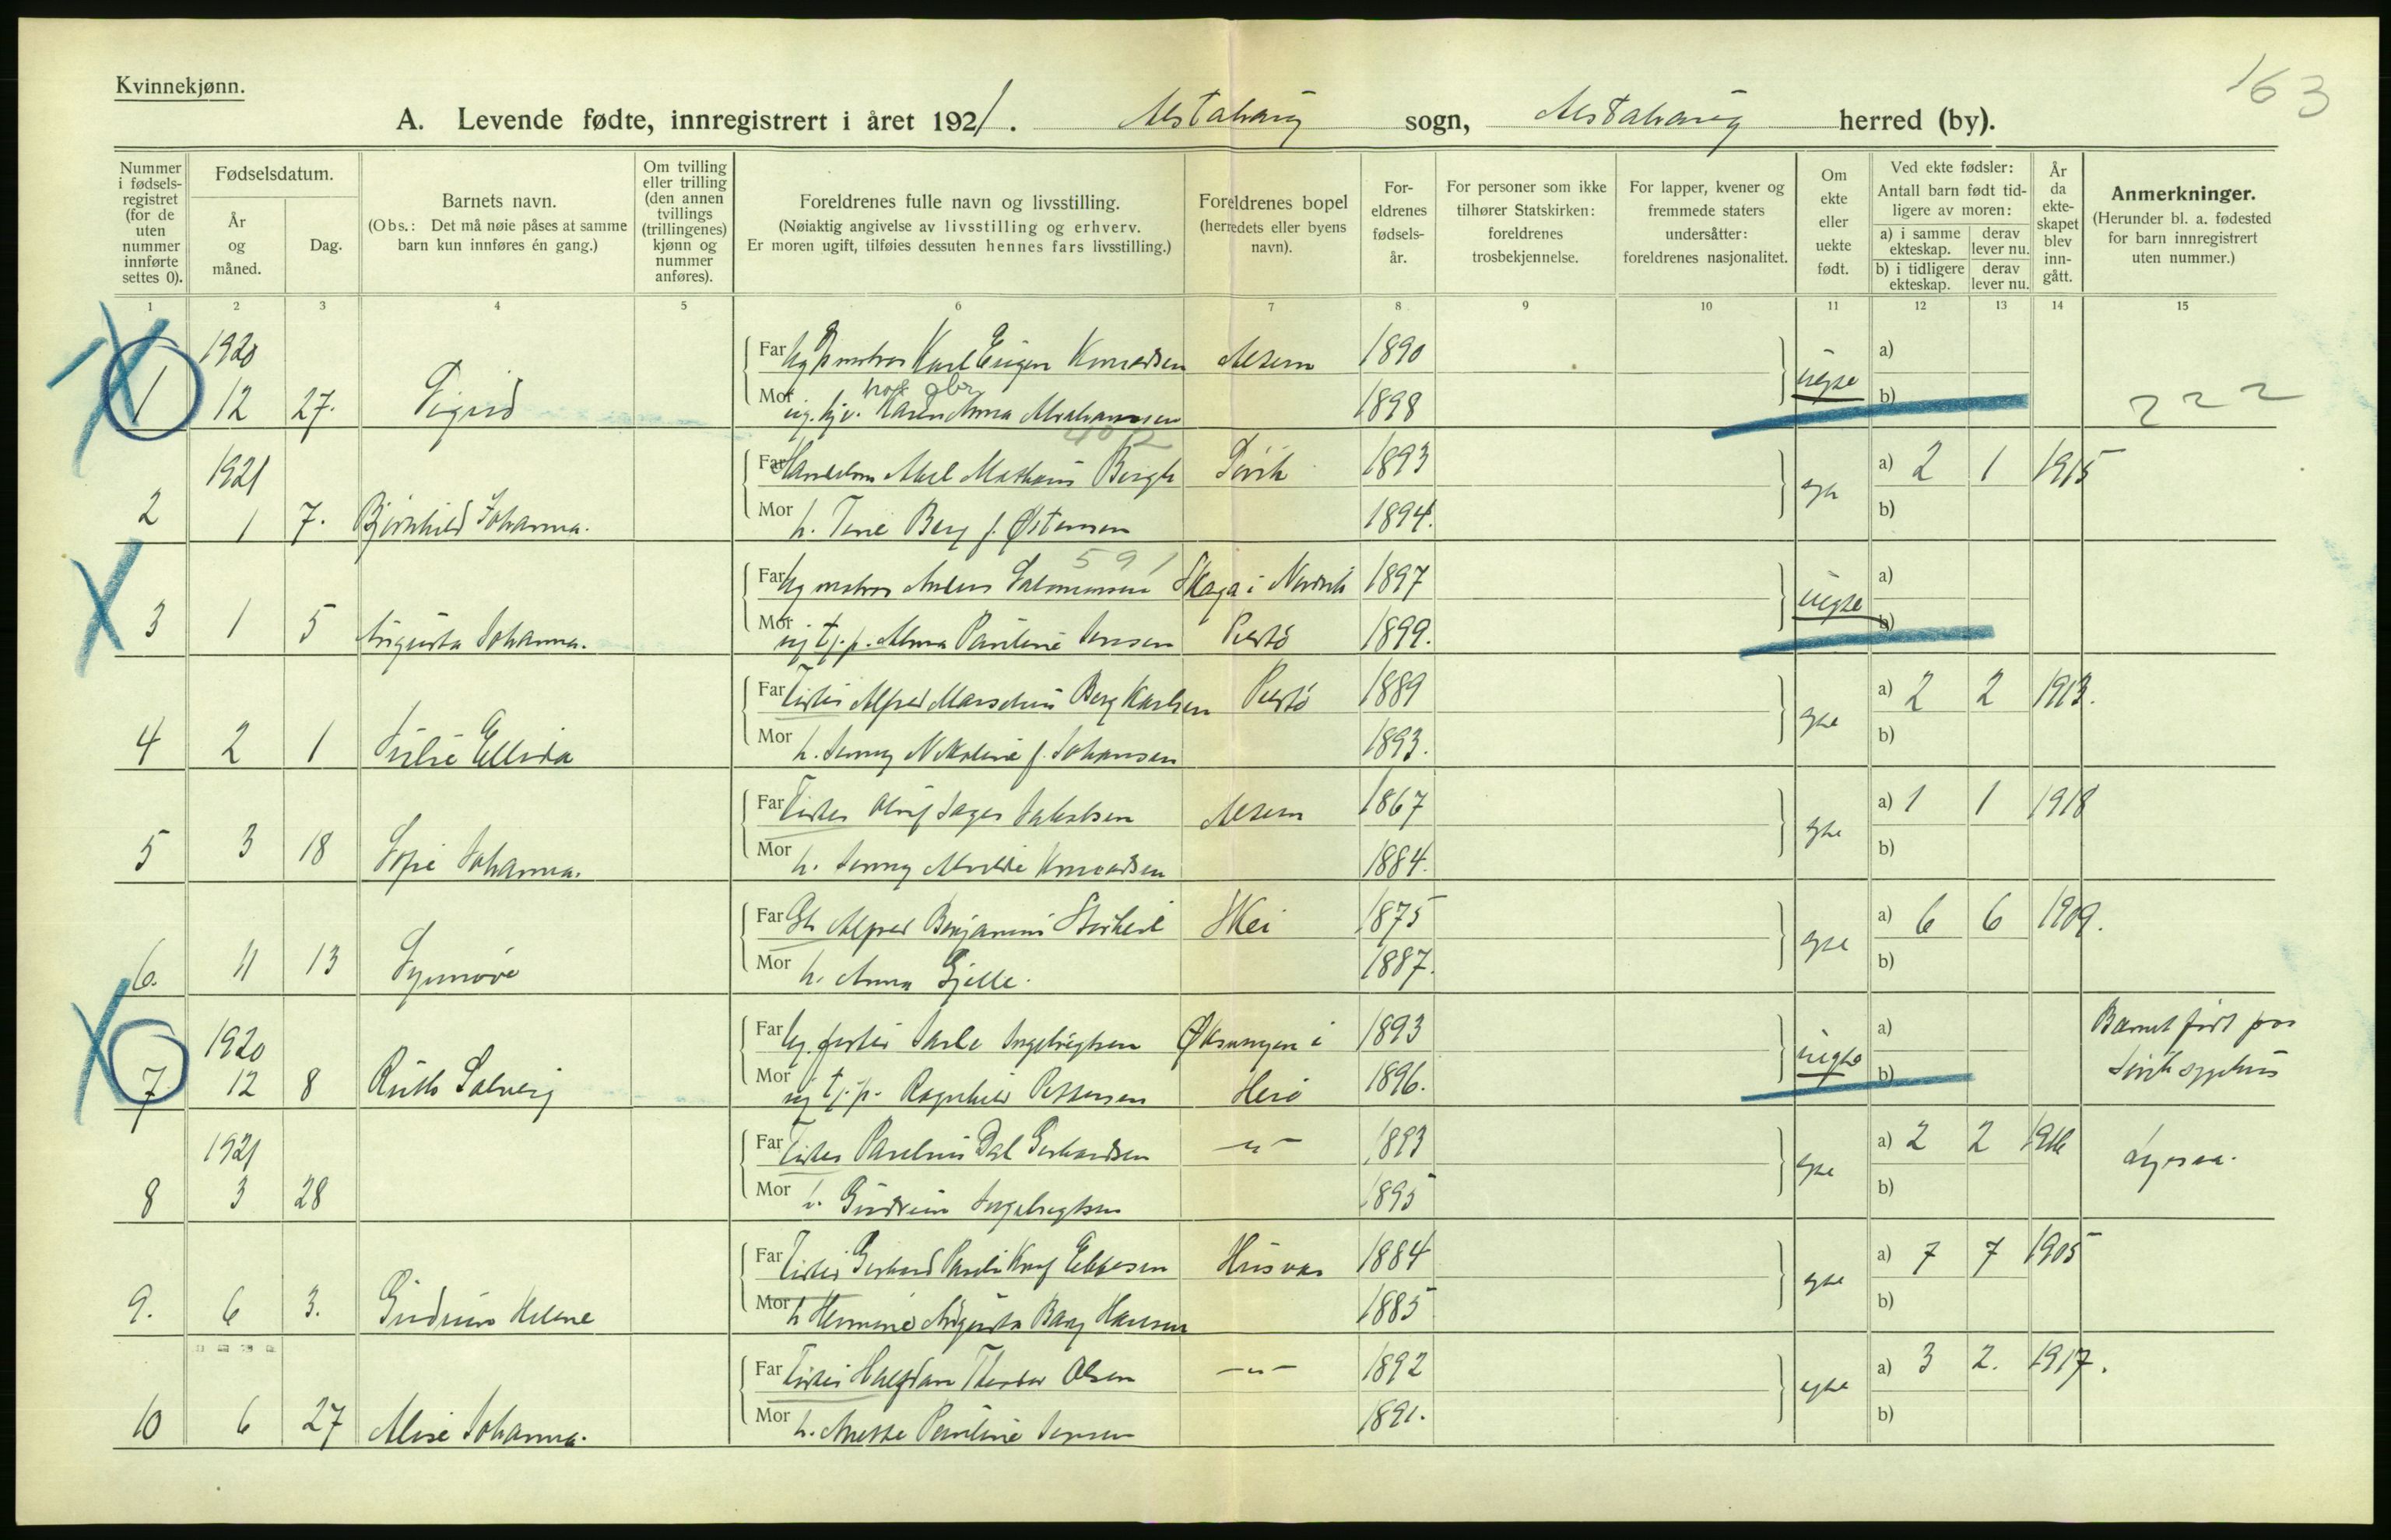 Kvinnekjønn.
163
A. Levende fødte, innregistrert i året 1921. Alstahaug sogn, Alstahaug herred (by).
Nummer i fødsels-registret (for de uten nummer innførte settes 0).
Fødselsdatum.
År og måned.
Dag.
Barnets navn.
(Obs.: Det må nøie påses at samme barn kun innføres én gang.)
Om tvilling eller trilling (den annen tvillings (trillingenes) kjønn og nummer anføres).
Foreldrenes fulle navn og livsstilling.
(Nøiaktig angivelse av livsstilling og erhverv.
Er moren ugift, tilføies dessuten hennes fars livsstilling.)
Foreldrenes bopel
(herredets eller byens navn).
For-eldrenes fødsels-år.
For personer som ikke tilhører Statskirken: foreldrenes trosbekjennelse.
For lapper, kvener og fremmede staters undersåtter: foreldrenes nasjonalitet.
Om ekte eller uekte født.
Ved ekte fødsler:
Antall barn født tid-ligere av moren:
a) i samme ekteskap.
derav lever nu.
b) i tidligere ekteskap.
derav lever nu.
År da ekte-skapet blev inn-gått.
Anmerkninger.
(Herunder bl. a. fødested for barn innregistrert uten nummer.)
1 2 3 4 5 6 7 8 9 10 11 12 13 14 15
1920
Far Karl Eugen Konradsen 1890 a)
1 12 27. Sigrid uegte
Mor Karen Anna Abrahamsen 1898 b)
4012
1921
Far Axel Mathæus Bergh 1893 a) 2 1 1915
2 1 7. Bjørnhild Johanna. egte
Mor h. Berg f. Østensen 1894. b)
591
Far ug matros Salomonsen i 1897 a)
3 1 5 Augusta Johanna. uegte
Mor ug tj.p. Alma Pauline Jensen 1899. b)
Far Fisker Alfred Berg Karlsen 1889 a) 2 2 1913.
4 2 1 Julie Ellida egte
Mor h. Jenny Nikoline f. Johansen 1893. b)
Far Fisker Jakobsen 1867 a) 1 1 1918
5 3 18 Sofie Johanna. egte
Mor h. Jenny Konradsen 1884. b)
Far Gb Alfred Benjamin Skei 1875 a) 6 6 1909.
6. 4 13 Synnøve egte
Mor h. Anna 1887. b)
1920
Far Ug. fisker Ingebrigtsen i 1893 a) Barnet født paa
7. 12 8 Ruth Solveig uegte sykehus
Mor ug tj.p. Ragnhild Pettersen Herø 1896. b)
1921
Far Fisker Dal Gerhardsen —"— 1893 a) 2 2 1916
8 3 28 egte
Mor h. Gudrun Ingebrigtsen 1895 b)
Far Fisker Gerhard Ebbesen Husvær 1884 a) 7 7 1905
9. 6 3. Gudrun Helene egte
Mor h Hermine Augusta Hansen 1885 b)
Far Fisker Halfdan Olsen —"— 1892 a) 3 2. 1917.
10 6 27 Alise Johanna. egte
Mor h. Anette Pauline Jensen 1891. b)